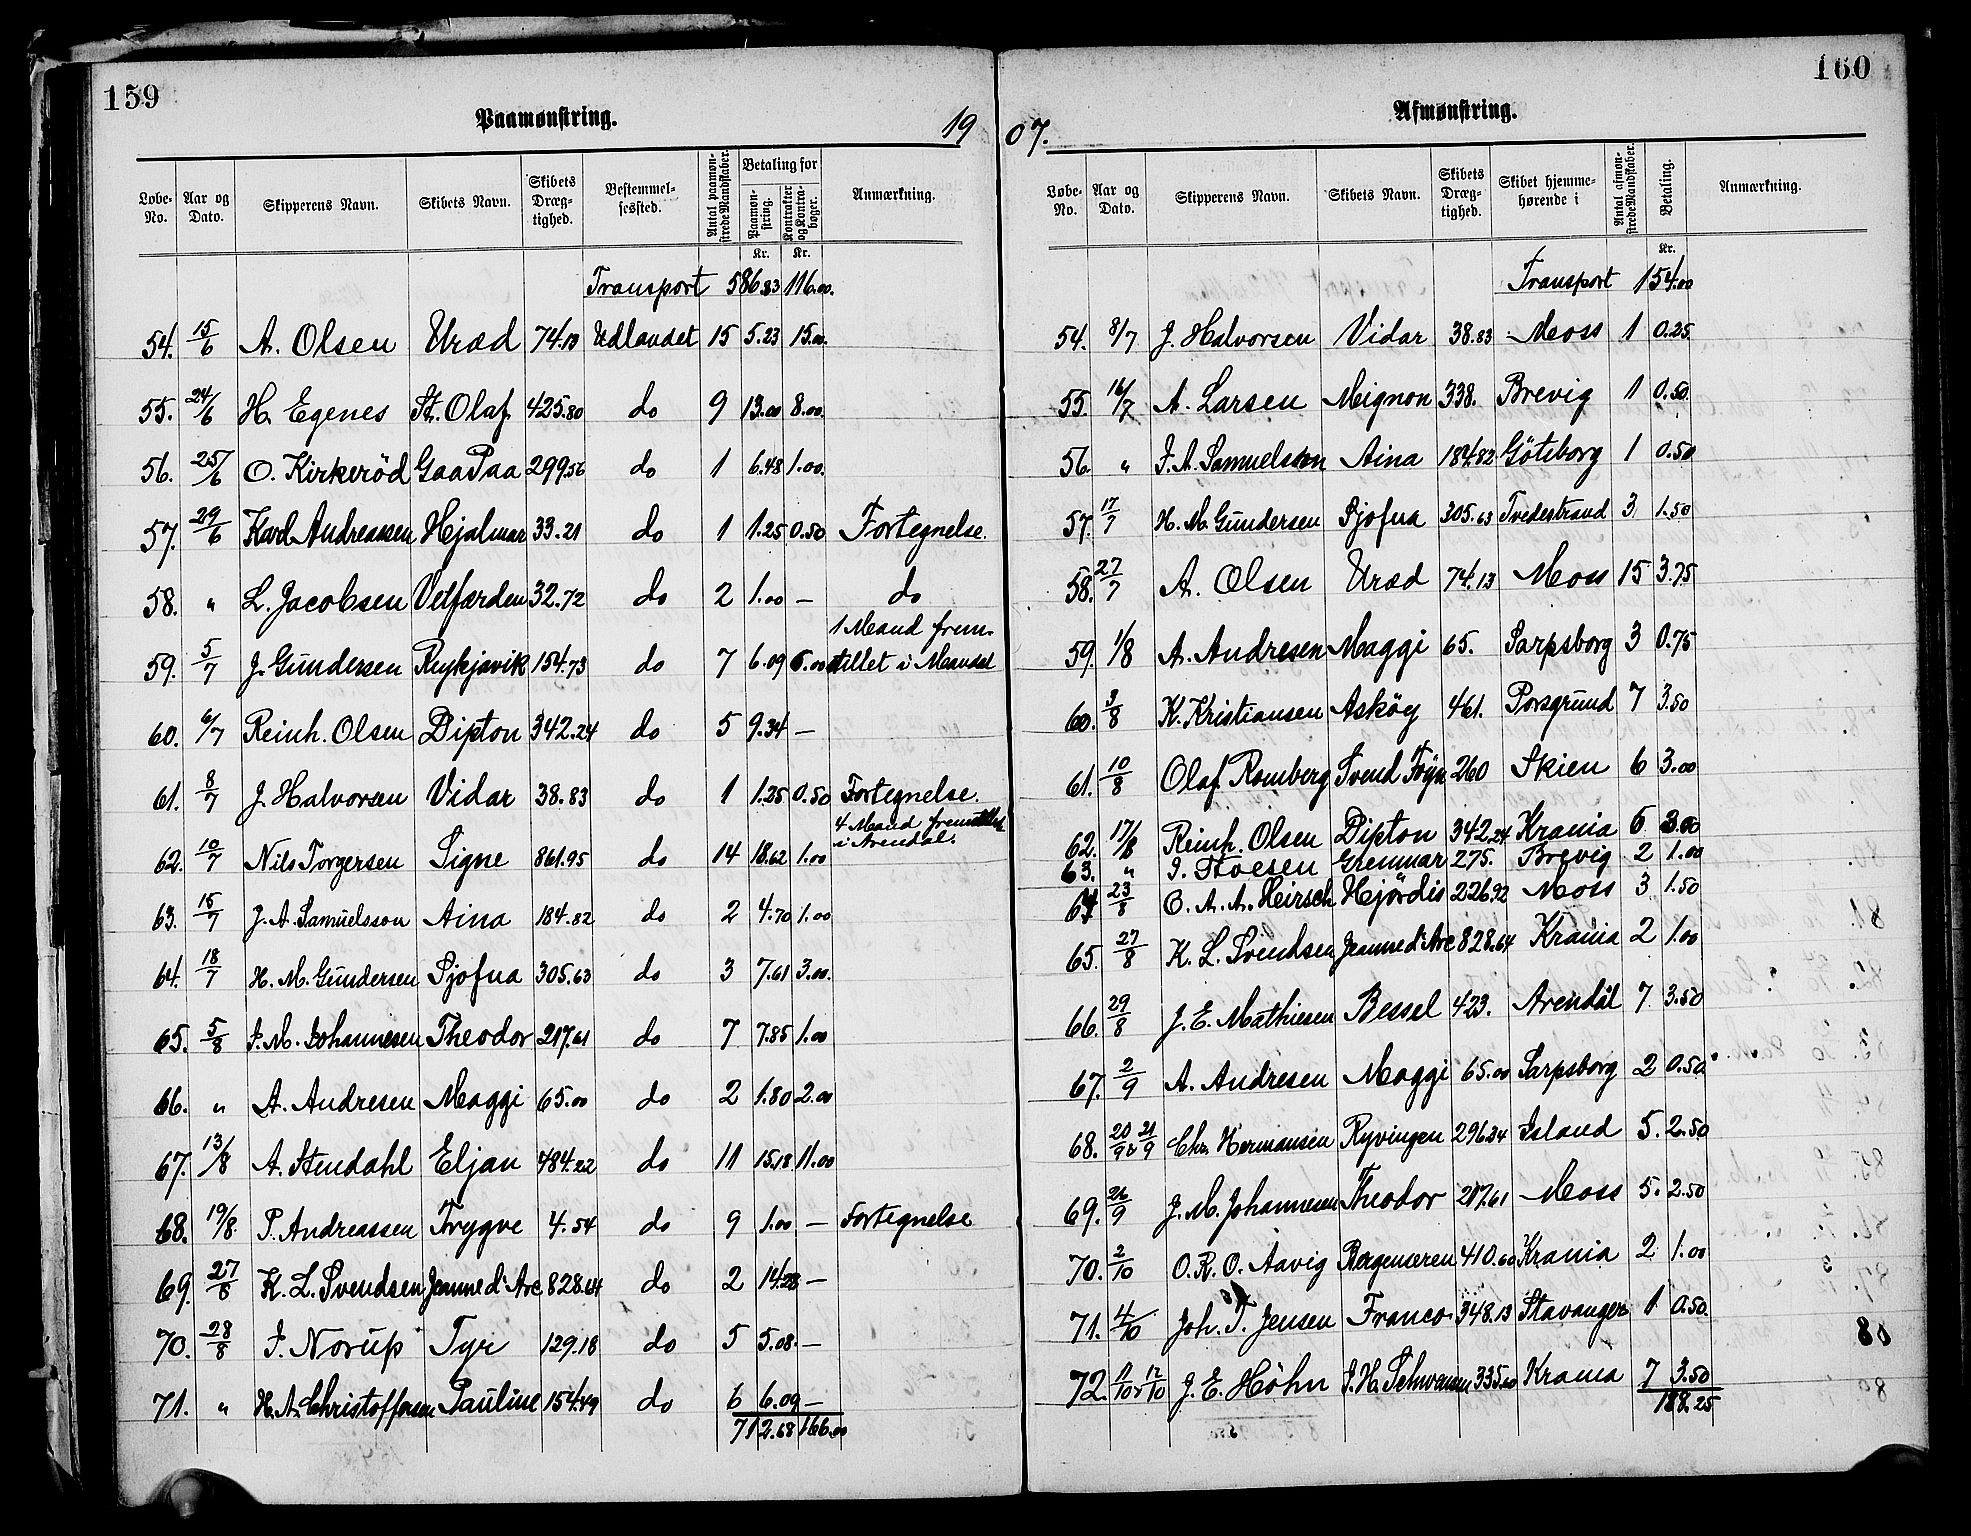 159
Paamønstring.
19
Løbe-No. | Aar og Dato. | Skipperens Navn. | Skibets Navn. | Skibets Dræg-tighed. | Bestemmel-sessted. | Antal paamøn-strede Mandskaber. | Betaling for Paamøn-string. Kr. | Kontrakter og Kontra-bøger. Kr. | Anmærkning.
Transport 586.83 116.00.
54. 15/6 A. Olsen Uræd 74.13 Udlandet 15 5.23 15.00.
55. 24/6 H. Egenes St. Olaf 425.80 do 9 13.00 8.00.
56. 25/6 O. Kirkeröd GaaPaa 299.56 do 1 6.48 1.00.
57. 29/6 Karl Andreassen Hjalmar 33.21 do 1 1.25 0.50 Fortegnelse.
58. " L. Jacobsen Velfærden 32.72 do 2 1.00 — do
59. 5/7 J. Gundersen Reykjavik 154.73 do 7 6.09 6.00 1 Mand frem-stillet i Mandal
60. 6/7 Reinh. Olsen Dipton 342.24 do 5 9.34 —
61. 8/7 J. Halvorsen Vidar 38.83 do 1 1.25 0.50 Fortegnelse.
62. 10/7 Nils Torgersen Signe 861.95 do 14 18.62 1.00 4 Mand fremstillet i Arendal.
63. 15/7 J. A. Samuelsson Aina 184.82 do 2 4.70 1.00
64. 18/7 H. M. Gundersen Sjofna 305.63 do 3 7.61 3.00.
65. 5/8 J. M. Johannesen Theodor 217.61 do 7 7.85 1.00
66. " A. Andresen Maggi 65.00 do 2 1.80 2.00
67. 13/8 A. Stendahl Eljan 484.22 do 11 15.18 11.00
68. 19/8. P. Andreassen Trygve 4.54 do 9 1.00 — Fortegnelse
69. 27/8 K. L. Svendsen Jeanne d'Arc 828.64 do 2 14.28 —
70. 28/8 J. Norup Tyr 129.18 do 5 5.08 —
71. " H. A. Christoffersen Pauline 154.49 do 6 6.09 —
712.68 166.00
160
Afmønstring.
07.
Løbe-No. | Aar og Dato. | Skipperens Navn. | Skibets Navn. | Skibets Dræg-tighed. | Skibet hjemme-hørende i | Antal afmøn-strede Mandskaber. | Betaling. Kr. | Anmærkning.
Transport 154.00
54. 8/7 J. Halvorsen Vidar 38.83 Moss 1 0.25
55. 16/7 A. Larsen Mignon 338. Brevig 1 0.50
56. " J. A. Samuelsson Aina 184.82 Göteborg 1 0.50
57. 17/7 H. M. Gundersen Sjofna 305.63 Tvedestrand 3 1.50
58. 27/7 A. Olsen Uræd 74.13 Moss 15 3.75
59. 1/8 A. Andresen Maggi 65. Sarpsborg 3 0.75
60. 3/8 K. Kristiansen Asköy 461. Porsgrund 7 3.50
61. 10/8 Olaf Romberg Svend Föyn 260 Skien 6 3.00
62. 17/8 Reinh. Olsen Dipton 342.24 Krania 6 3.00
63. " Grenmar 275. Brevig 2 1.00
64 23/8 O. A. A. Heirsch Hjördis 226.92 Moss 3 1.50
65. 27/8 K. L. Svendsen Jeanne d'Arc 828.64 Krania 2 1.00
66. 29/8 J. E. Mathiesen Bessel 423. Arendal 7 3.50
67. 2/9 A. Andresen Maggi 65.00 Sarpsborg 2 0.50
68. 20/9 & 21/9 Chr. Hermansen Ryvingen 296.34 Island 5. 2.50
69. 26/9 J. M. Johannesen Theodor 217.61 Moss 5. 2.50
70. 2/10 O. R. O. Aavig Bergenseren 410.60 Krania 2 1.00
71. 4/10 Joh. T. Jensen Franco 348.13 Stavanger 1 0.50
72. 11/10 & 12/10 J. E. Höhn J. H. 335.00 Krania 7 3.50
188.25